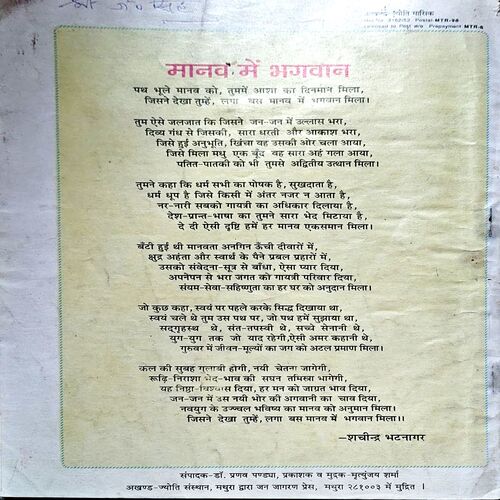 अखण्ड ज्योति मासिक
मानव में भगवान
पथ भूले मानव को, तुममें आशा का दिनमान मिला,
जिसने देखा तुम्हें, लगा बस मानव में भगवान मिला।
तुम ऐसे जलजात कि जिसने जन-जन में उल्लास भरा,
दिव्य गंध से जिसकी, सारा धरती और आकाश भरा,
जिसे हुई अनुभूति, खिंचा वह उसकी ओर चला आया,
जिसे मिला मधु एक बूँद वह सारा अहं गला आया,
पतित-पातकी को भी तुमसे अद्वितीय उत्थान मिला।।
तुमने कहा कि धर्म सभी का पोषक है, सुखदाता है,
धर्म धूप है जिसे किसी में अंतर नजर न आता है,
नर-नारी सबको गायत्री का अधिकार दिलाया है,
देश-प्रान्त-भाषा का तुमने सारा भेद मिटाया है,
दे दी ऐसी दृष्टि हमें हर मानव एकसमान मिला।
बँटी हुई थी मानवता अनगिन ऊँची दीवारों में,
क्षुद्र अहंता और स्वार्थ के पैने प्रबल प्रहारों में,
उसको संवेदना-सूत्र से बाँधा, ऐसा प्यार दिया,
अपनेपन से भरा जगत को गायत्री परिवार दिया,
संयम-सेवा-सहिष्णुता का हर घर को अनुदान मिला।
जो कुछ कहा, स्वयं पर पहले करके सिद्ध दिखाया था,
स्वयं चले थे तुम उस पथ पर, जो पथ हमें सुझाया था,
सद्गृहस्थ थे, संत-तपस्वी थे, सच्चे सेनानी थे,
युग-युग तक जो याद रहेगी,ऐसी अमर कहानी थे,
गुरुवर में जीवन-मूल्यों का जग को अटल प्रमाण मिला।
कल की सुबह गुलाबी होगी, नयी चेतना जागेगी,
रूढ़ि-निराशा भेद-भाव की सघन तमिस्रा भागेगी,
यह निष्ठा-विश्वास दिया, हर मन को जाग्रत भाव दिया,
जन-जन में उस नयी भोर की अगवानी का चाव दिया,
नवयुग के उज्ज्वल भविष्य का मानव को अनुमान मिला।
जिसने देखा तुम्हें, लगा बस मानव में भगवान मिला।।
–शचीन्द्र भटनागर
संपादक-डॉ. प्रणव पण्ड्या, प्रकाशक व मुद्रक-मृत्युंजय शर्मा
अखण्ड-ज्योति संस्थान, मथुरा द्वारा जन जागरण प्रेस, मथुरा २८१००३ में मुद्रित ।